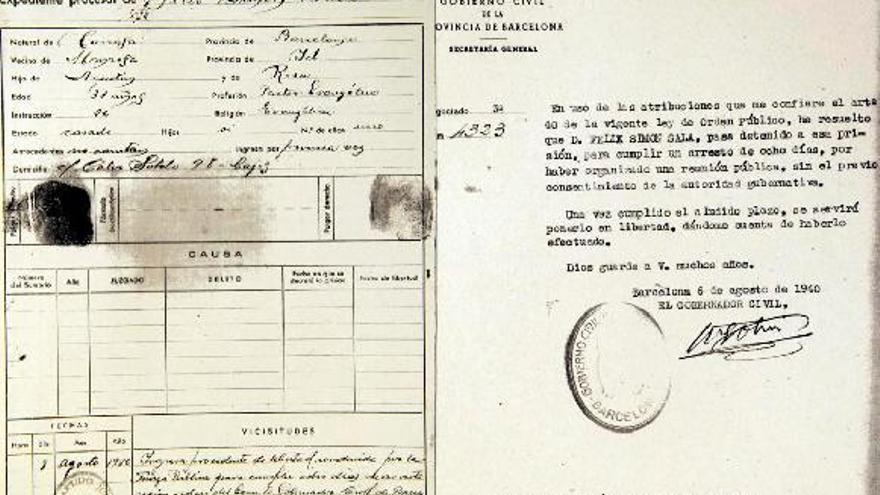 Expediente procesal de
Natural de Provincia de Barcelona
Vecino de Provincia de Id
Hijo de y de Rosa
Edad 31 años Profesión Pastor Evangélico
Instrucción Religión Evangélica
Estado casado Hijos si N.º de ellos uno
Antecedentes no constan Ingresa por primera vez
Domicilio c/ Calvo Sotelo 98
Pulgar derecho
CAUSA
Número del Sumario Año JUZGADO DELITO Fecha en que se decretó la prisión Fecha de libertad
FECHAS VICISITUDES
Hora Día Mes Año
8 agosto Ingresa procedente de libertad conducido por la
Fuerza Pública para cumplir ocho días de arresto
GOBIERNO CIVIL
DE LA
PROVINCIA DE BARCELONA
SECRETARÍA GENERAL
4323
En uso de las atribuciones que me confiere el art&
40 de la vigente ley de Orden Público, ha resuelto
que D. FELIX SIMON SALA, pasa detenido a esa pri-
sión, para cumplir un arresto de ocho días, por
haber organizado una reunión pública, sin el previo
consentimiento de la autoridad gubernativa.
Una vez cumplido el aludido plazo, se servirá
ponerlo en libertad, dándome cuenta de haberlo
efectuado.
Dios guarde a V. muchos años.
Barcelona 6 de agosto de 1940
EL GOBERNADOR CIVIL,
GOBIERNO CIVIL
BARCELONA